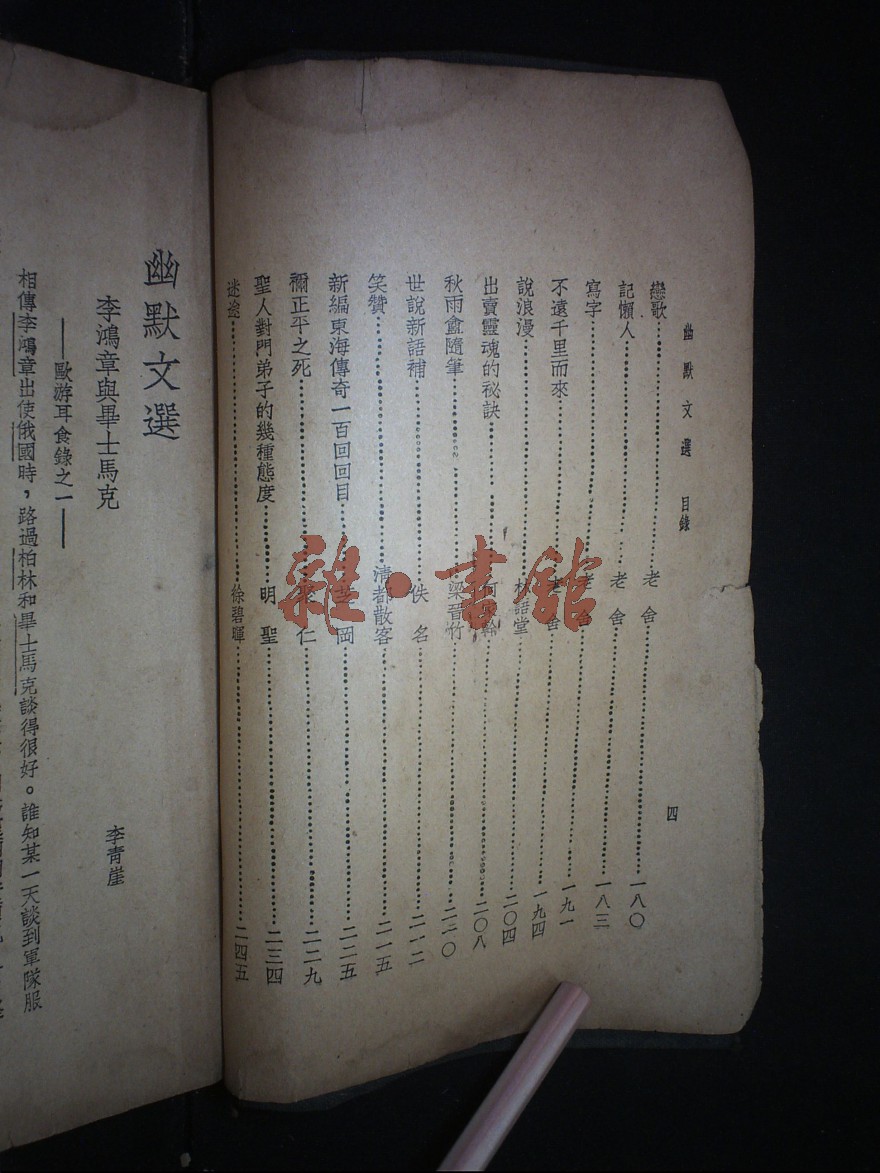 幽默文選 目錄
四
戀歌………老舍………一八〇
記懶人………老舍………一八三
寫字………老舍………一九一
不遠千里而來………老舍………一九四
說浪漫………林語堂………二〇四
出賣靈魂的秘訣………………二〇八
秋雨盦隨筆………梁晉竹………二一〇
世說新語補………佚名………二一二
笑贊………清都散客………二一五
新編東海傳奇一百回回目………芝岡………二二五
禰正平之死………仁………二二九
聖人對門弟子的幾種態度………明聖………二三四
迷途………徐碧暉………二四五
幽默文選
李鴻章與畢士馬克
——歐游耳食錄之一——
李青崖
相傳李鴻章出使俄國時，路過柏林和畢士馬克談得很好。誰知某一天談到軍隊服
雜·書館